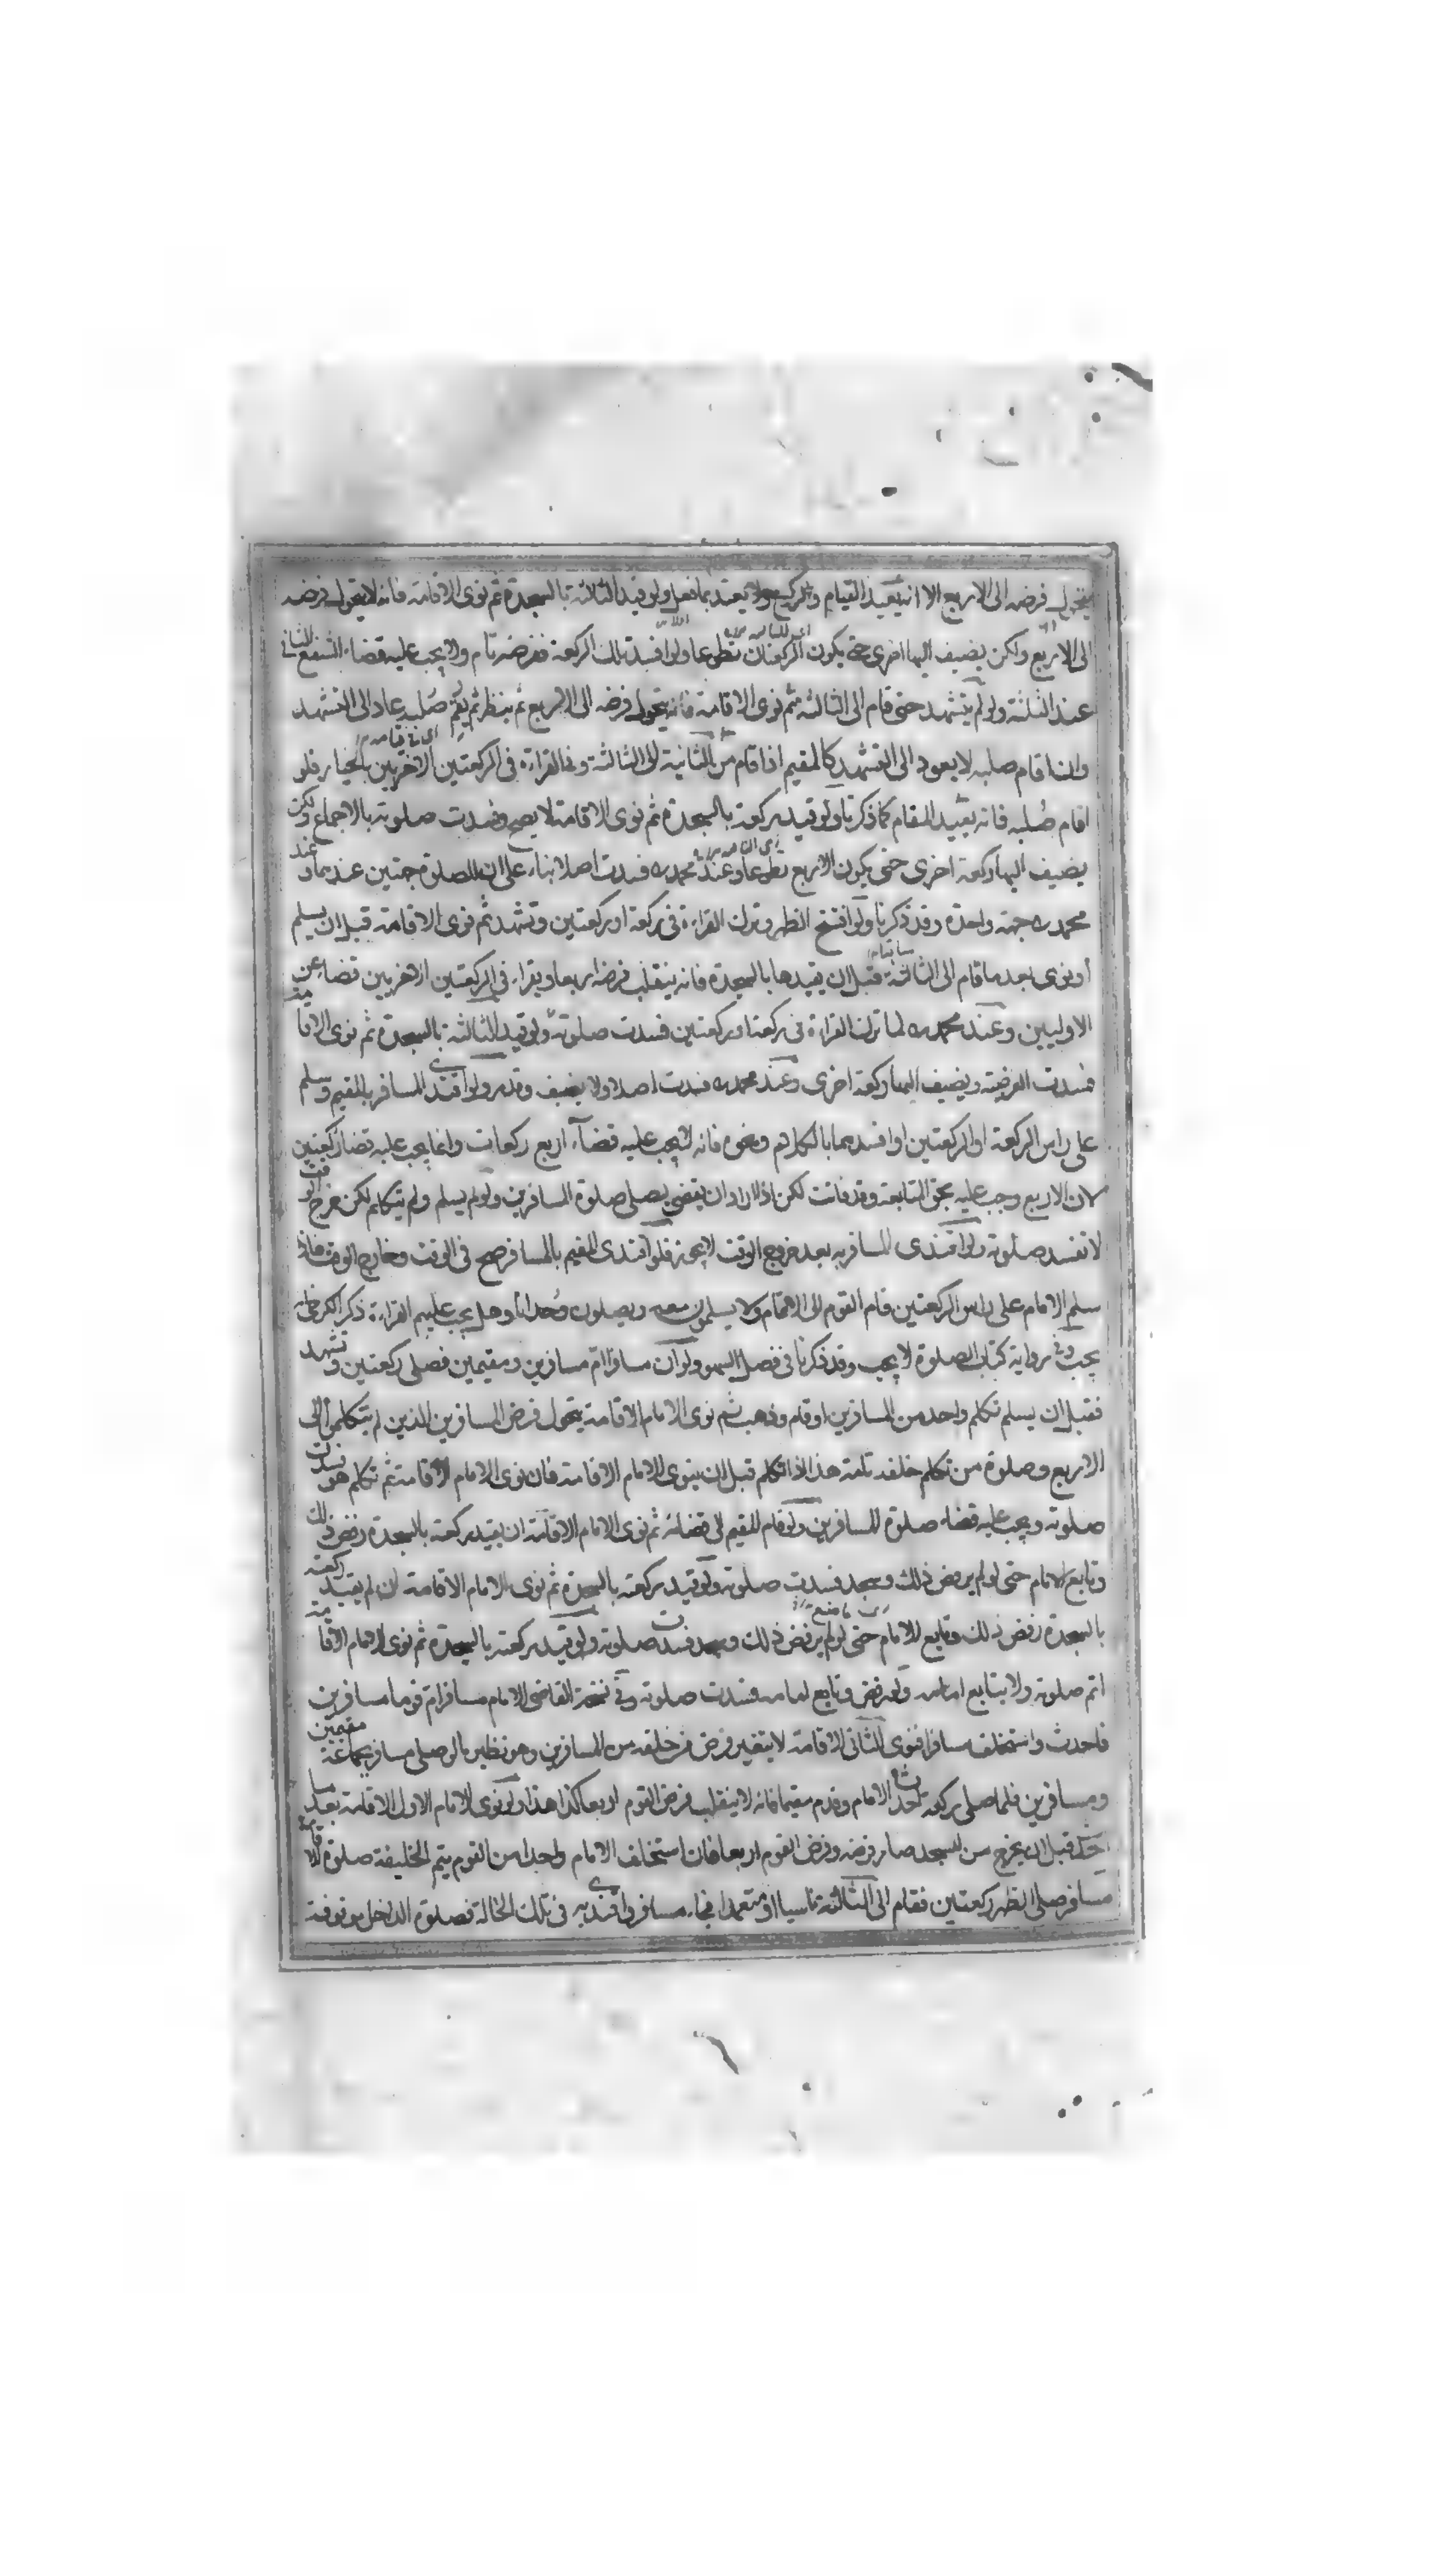 يتحول فرضه الى الاربع الا انه يعيد القيام والركوع ولا يعتد بما فعل ولو قيد الثالثة بالسجدة ثم نوى الاقامة فانه لا يتحول فرضه
الى الاربع ولكن يضيف اليها اخرى حتى يكون الركعتان تطوعا ولو افسد تلك الركعة ففرضه تام ولا يجب عليه قضاء الشفع الثاني
عند الثلثة ولو لم يتشهد حتى قام الى الثالثة ثم نوى الاقامة فانه يتحول فرضه الى الاربع ثم ينظر ان لم يقم صلبه عاد الى التشهد
وان اقام صلبه لا يعود الى التشهد كالمقيم اذا قام من الثانية الى الثالثة وفى القراءة فى الركعتين الاخريين بالخيار فلو
اقام صلبه فانه يعيد القيام كما ذكرنا ولو قيد ركعة بالسجدة ثم نوى الاقامة لا يصح وفسدت صلوته بالاجماع ولكن
يضيف اليها ركعة اخرى حتى يكون الاربع تطوعا وعند محمد ره فسدت اصلا بناء على ان للصلوة جهتين عندهما وعند
محمد ره جهة واحدة وقد ذكرنا ولو افتتح الظهر وترك القراءة فى ركعة او ركعتين وتشهد ثم نوى الاقامة قبل ان يسلم
او نوى بعد ما قام الى الثالثة قبل ان يقيدها بالسجدة فانه ينقلب فرضه اربعا ويقراء فى الركعتين الاخريين قضاء عن
الاوليين وعند محمد ره لما ترك القراءة فى ركعة او ركعتين فسدت صلوته ولو قيد الثالثة بالسجدة ثم نوى الاقامة
فسدت الفرضية ويضيف اليها ركعة اخرى وعند محمد ره فسدت اصلا ولا يضيف وقد مر ولو اقتدى المسافر بالمقيم وسلم
على راس الركعة او الركعتين او افسدهما بالكلام ونحوه فانه لا يجب عليه قضاء اربع ركعات وانما يجب عليه قضاء ركعتين
لان الاربع وجب عليه بحق المتابعة وقد فاتت لكن اذا اراد ان يقضى يصلى صلوة المسافرين ولو لم يسلم ولم يتكلم لكن خرج الوقت
لا تفسد صلوته ولو اقتدى المسافر به بعد خروج الوقت لا يجوز فلو اقتدى المقيم بالمسافر صح فى الوقت وخارج الوقت فاذا
سلم الامام على راس الركعتين قام القوم الى الاتمام ولا يسلمون معه ويصلون وحدانا وهل يجب عليهم القراءة ذكر الكرخى انه
يجب وفى رواية كتاب الصلوة لا يجب وقد ذكرنا فى فصل السهو ولو ان مسافرا ام مسافرين ومقيمين فصلى ركعتين وتشهد
فقبل ان يسلم تكلم واحد من المسافرين او قام وذهب ثم نوى الامام الاقامة يتحول فرض المسافرين الذين لم يتكلموا الى
الاربع وصلوة من تكلم خلفه تامة هذا اذا تكلم قبل ان ينوى الامام الاقامة فان نوى الامام الاقامة ثم تكلم هو فسدت
صلوته ويجب عليه قضاء صلوة المسافرين ولو قام المقيم الى قضائه ثم نوى الامام الاقامة ان لم يقيد ركعة بالسجدة رفض ذلك
وتابع الامام حتى لو لم يرفض ذلك وسجد فسدت صلوته ولو قيد ركعة بالسجدة ثم نوى الامام الاقامة ان لم يقيد ركعة
بالسجدة رفض ذلك وتابع الامام حتى لو لم يرفض ذلك وسجد فسدت صلوته ولو قيد ركعة بالسجدة ثم نوى الامام الاقامة
اتم صلوته ولا يتابع امامه ولو رفض وتابع امامه فسدت صلوته وفى نسخة القاضى الامام مسافر ام قوما مسافرين
فاحدث واستخلف مسافرا فنوى الثانى الاقامة لا يتغير فرض من خلفه من المسافرين وهو نظير ما لو صلى مسافر بجماعة مقيمين
ومسافرين فلما صلى ركعة احدث الامام وقدم مقيما فانه لا ينقلب فرض القوم اربعا كذا هذا ولو نوى الامام الاول الاقامة بعد ما
احدث قبل ان يخرج من المسجد صار فرضه وفرض القوم اربعا فان استخلف الامام واحدا من القوم يتم الخليفة صلوة الاقامة
مسافر صلى الظهر ركعتين فقام الى الثالثة ناسيا او متعمدا فجاء مسافر واقتدى به فى تلك الحالة فصلوة الداخل موقوفة